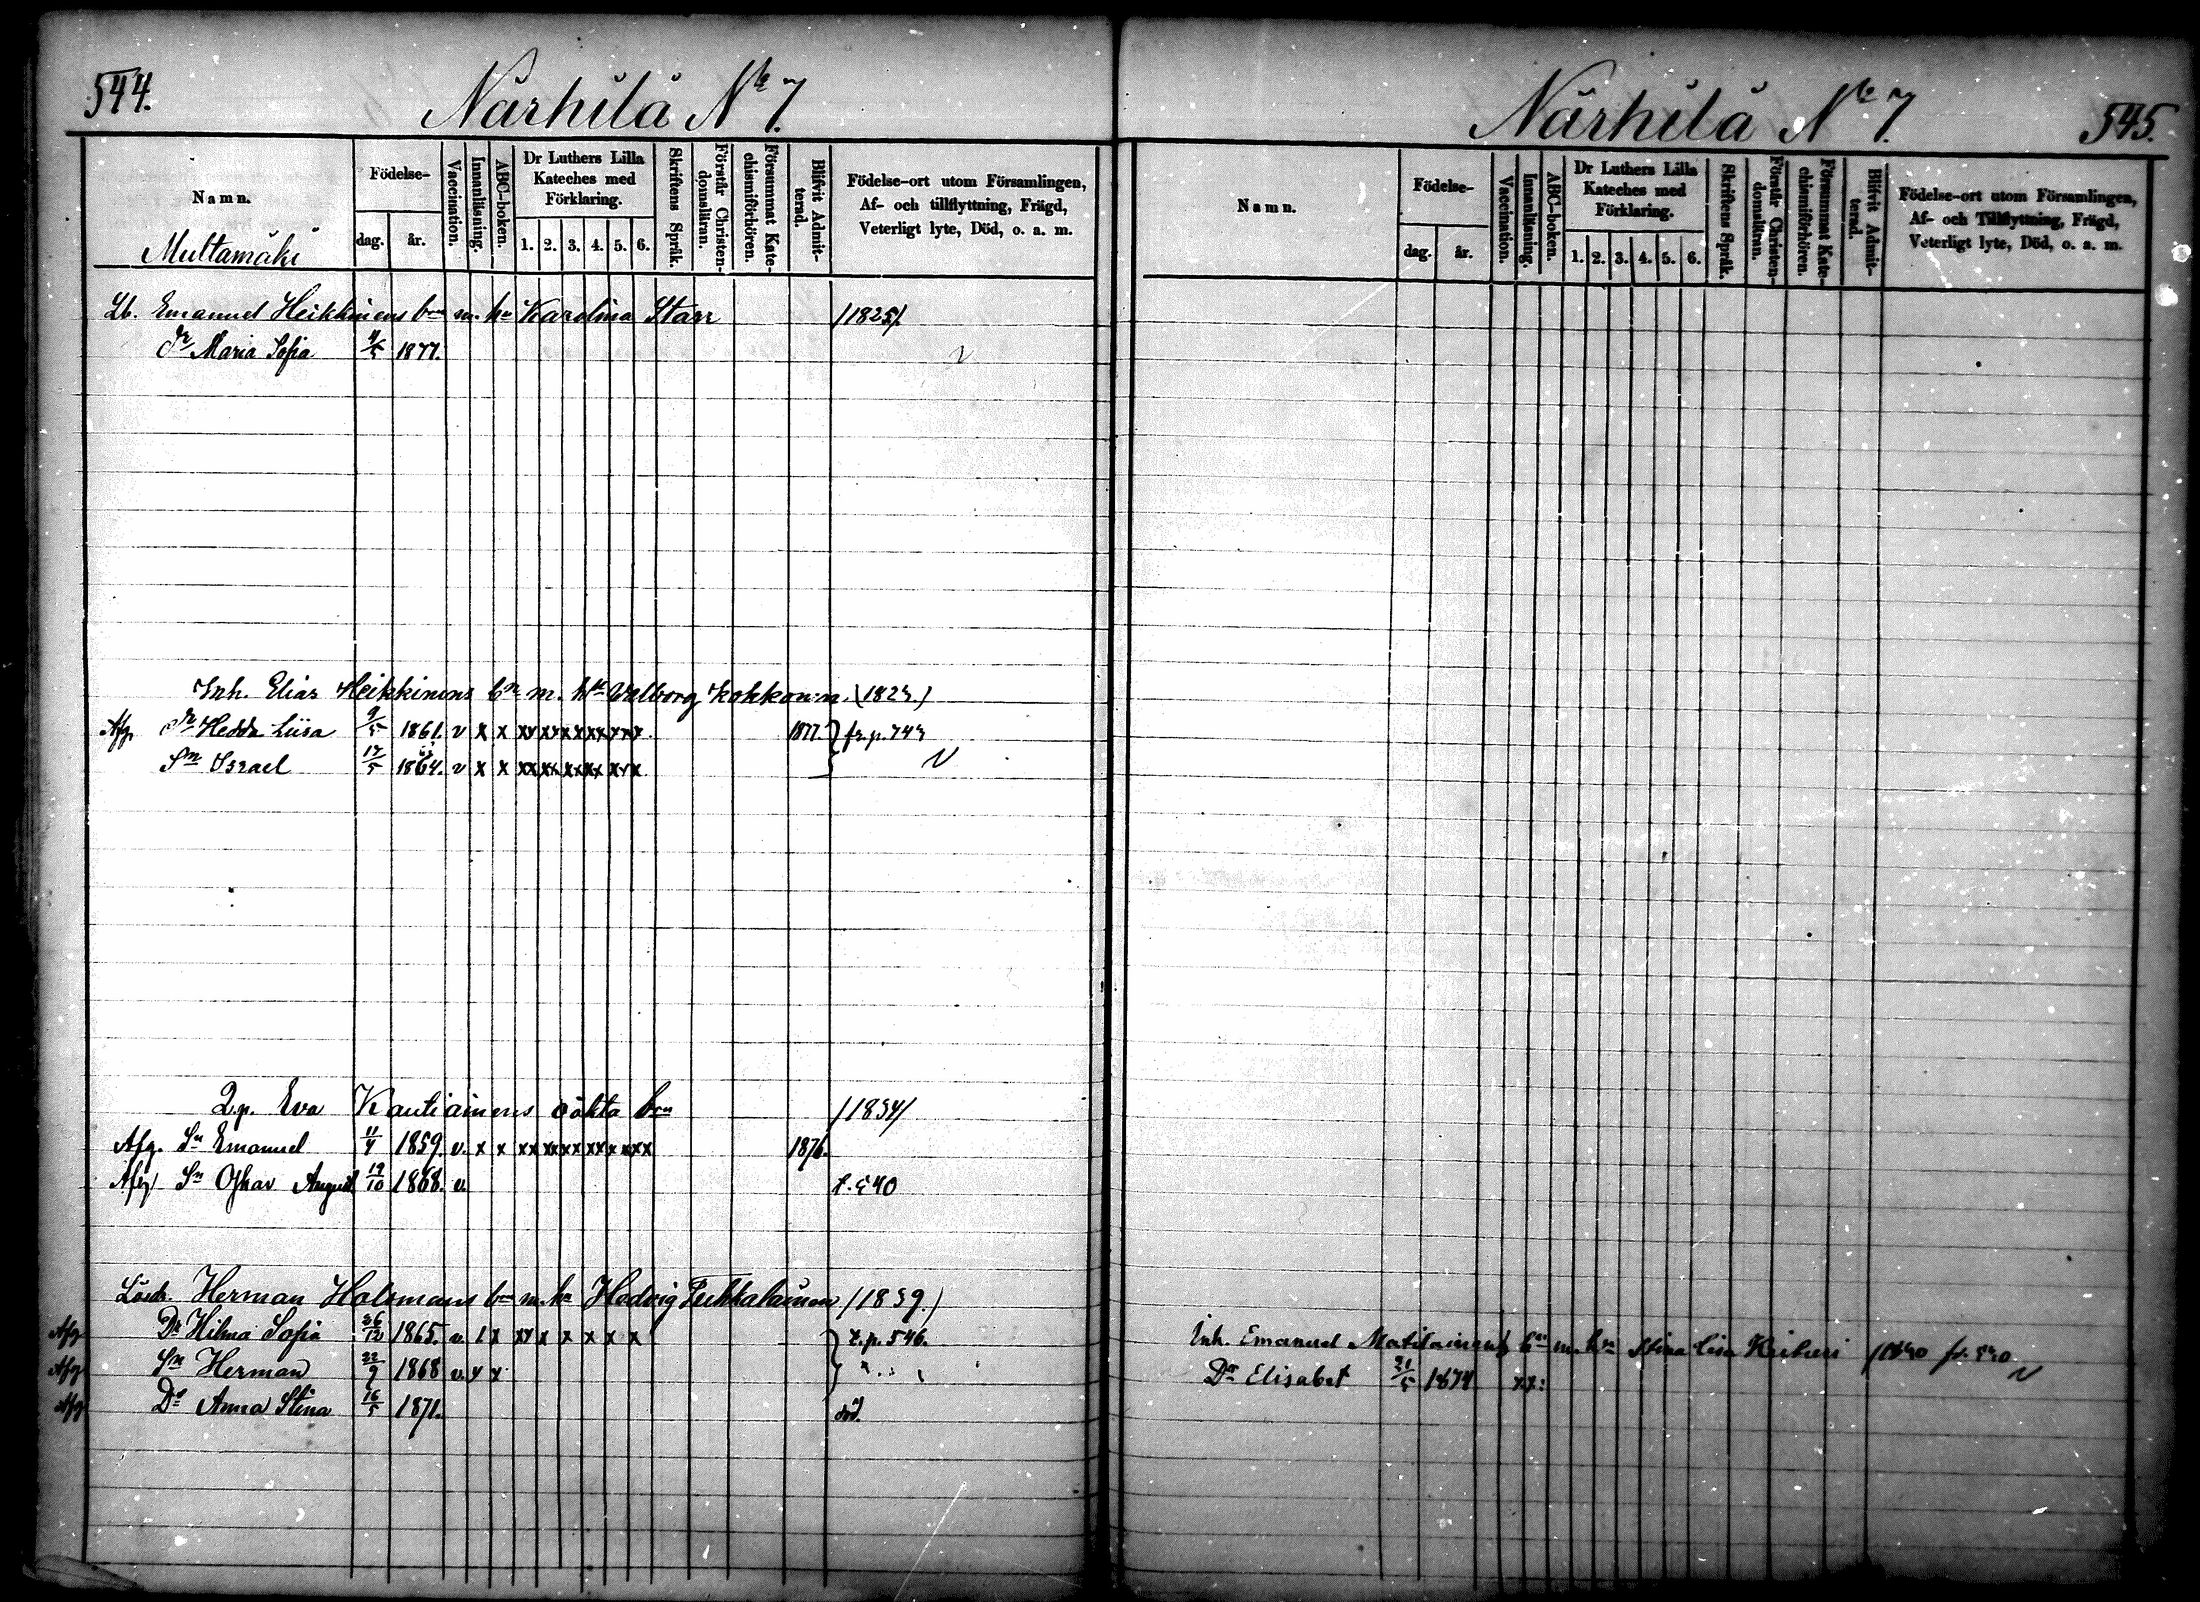 544.
Närhilä No 7.
Namn.
Födelse-
dag.
år.
Vaccination.
Innanläsning.
ABC-boken.
Dr Luthers Lilla Kateches med Förklaring.
1. 2. 3. 4. 5. 6.
Skriftens Språk.
Förstår Christendomsläran.
Försummat Katechismiförhören.
Blifvit Admitterad.
Födelse-ort utom Församlingen, Af- och tillflyttning, Frägd, Veterligt lyte, Död, o. a. m.
Multamäki
Lb. Emanuel Heikkinens bn m. hu Karolina Starr /1825/.
Dr Maria Sofia 4/5 1877.
Inh. Elias Heikkinens bn m. hu Valborg Kokkonen. (1823)
Afg. Dr Hedda Liisa 9/5 1861. v x x xx xx xx xx xxx 1877. fr. p. 743
Sn Israel 17/5 1864. v x x xx xx xx xx xxx
Qp. Eva Kautiainens oäkta bn /1834/
Afg. Sn Emanuel 11/4 1859. v. x x xx xx xx xx x xxx 1876.
Afg Sn Oskar August 19/10 1868. v. t. 540
Lösdr. Herman Holsmans bn m. hu Hedvig Pekkalainen /1839.)
Afg Dr Hilma Sofia 26/12 1865. v. 1 x xx x x x x x t. p. 546.
Afg Sn Herman 22/9 1868 v. x x
Afg Dr Anna Stina 16/5 1871. död.
Närhilä No 7.
545.
Namn.
Födelse-
dag.
år.
Vaccination.
Innanläsning.
ABC-boken.
Dr Luthers Lilla Kateches med Förklaring.
1. 2. 3. 4. 5. 6.
Skriftens Språk.
Förstår Christendomsläran.
Försummat Katechismiförhören.
Blifvit Admitterad.
Födelse-ort utom Församlingen, Af- och Tillflyttning, Frägd, Veterligt lyte, Död, o. a. m.
Inh. Emanuel Matilainens bn m. hu Stina Lisa
Dr Elisabet 21/5 1874 xx: